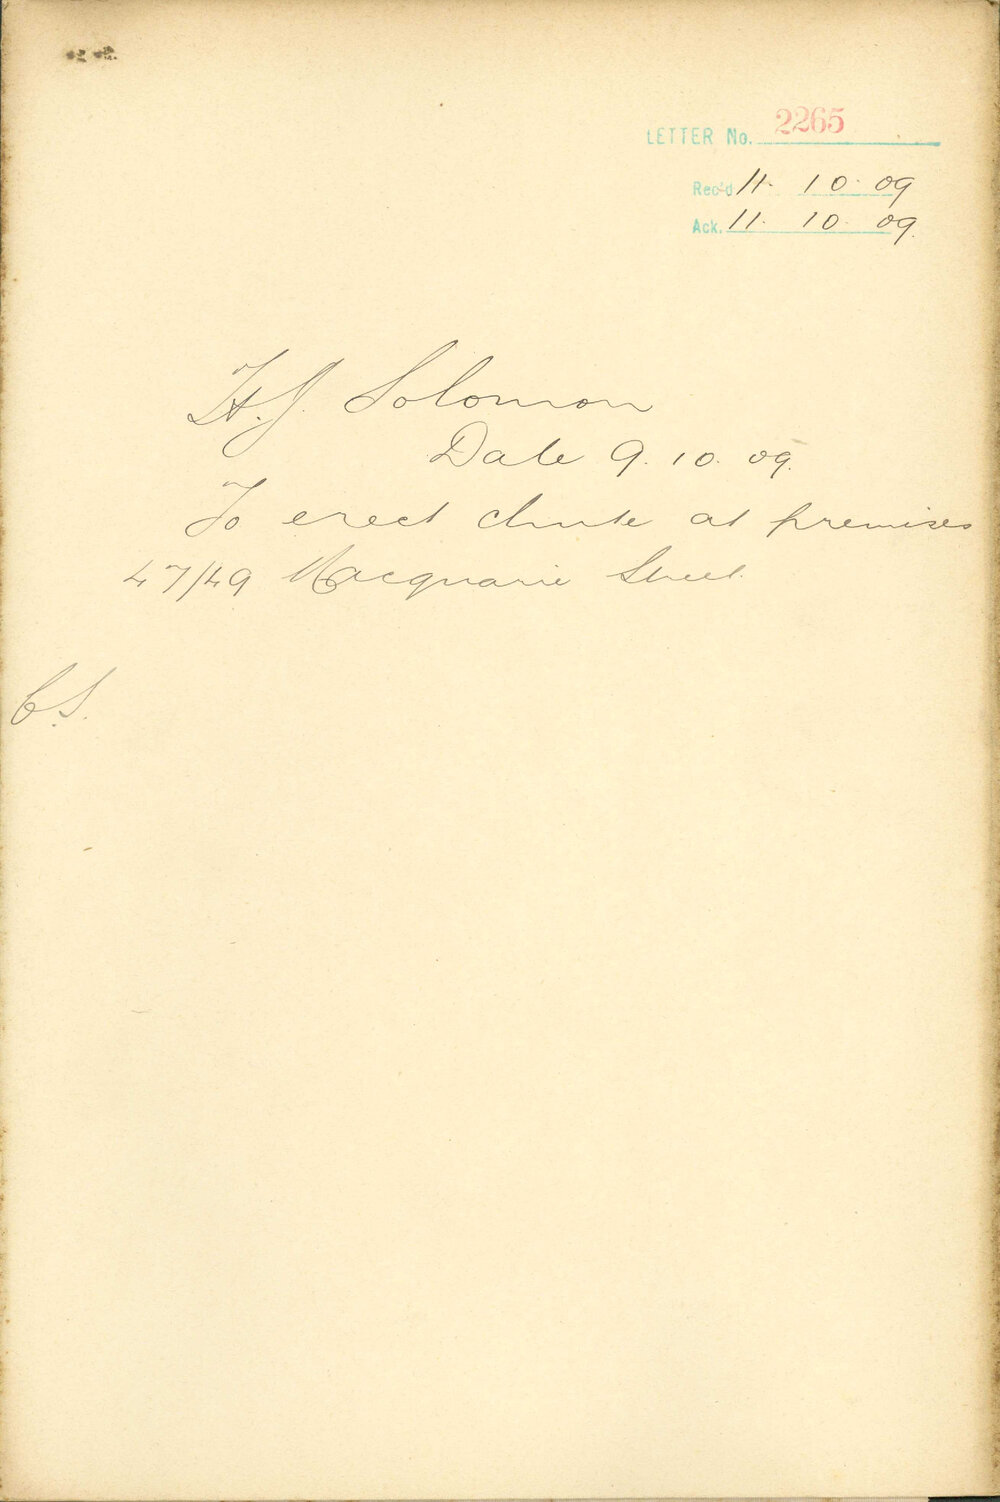 LETTER No. 2265
Rec'd 11. 10. 09
Ack. 11. 10. 09.
H.J. Solomon
Date 9. 10. 09.
To erect chute at premises
47/49 Macquarie Street.
C.S.